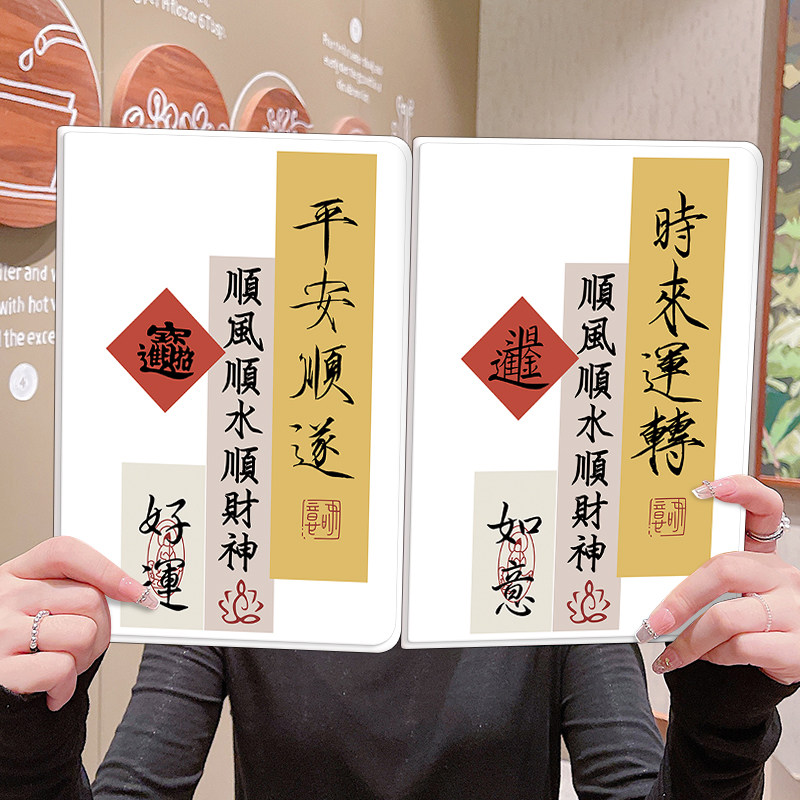 平安順遂
順風順水順財神
招財進寶
好運
時來運轉
順風順水順財神
日進斗金
如意
ller and w
with hot
the exce
4